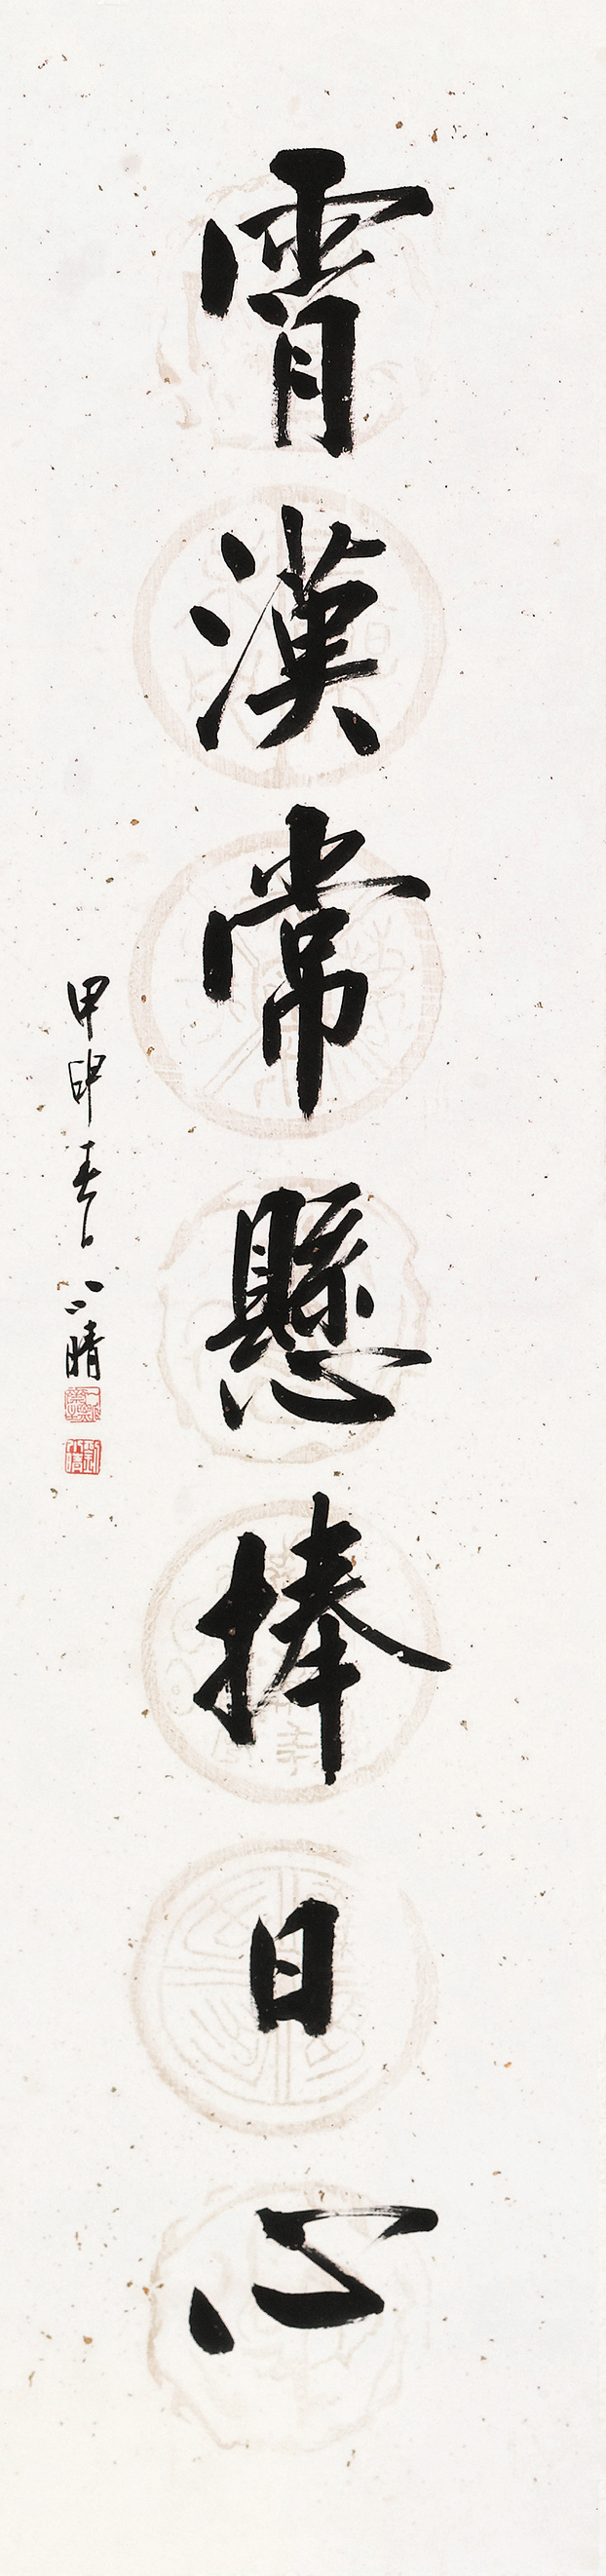 霄漢常懸捧日心
甲申春日 小晴